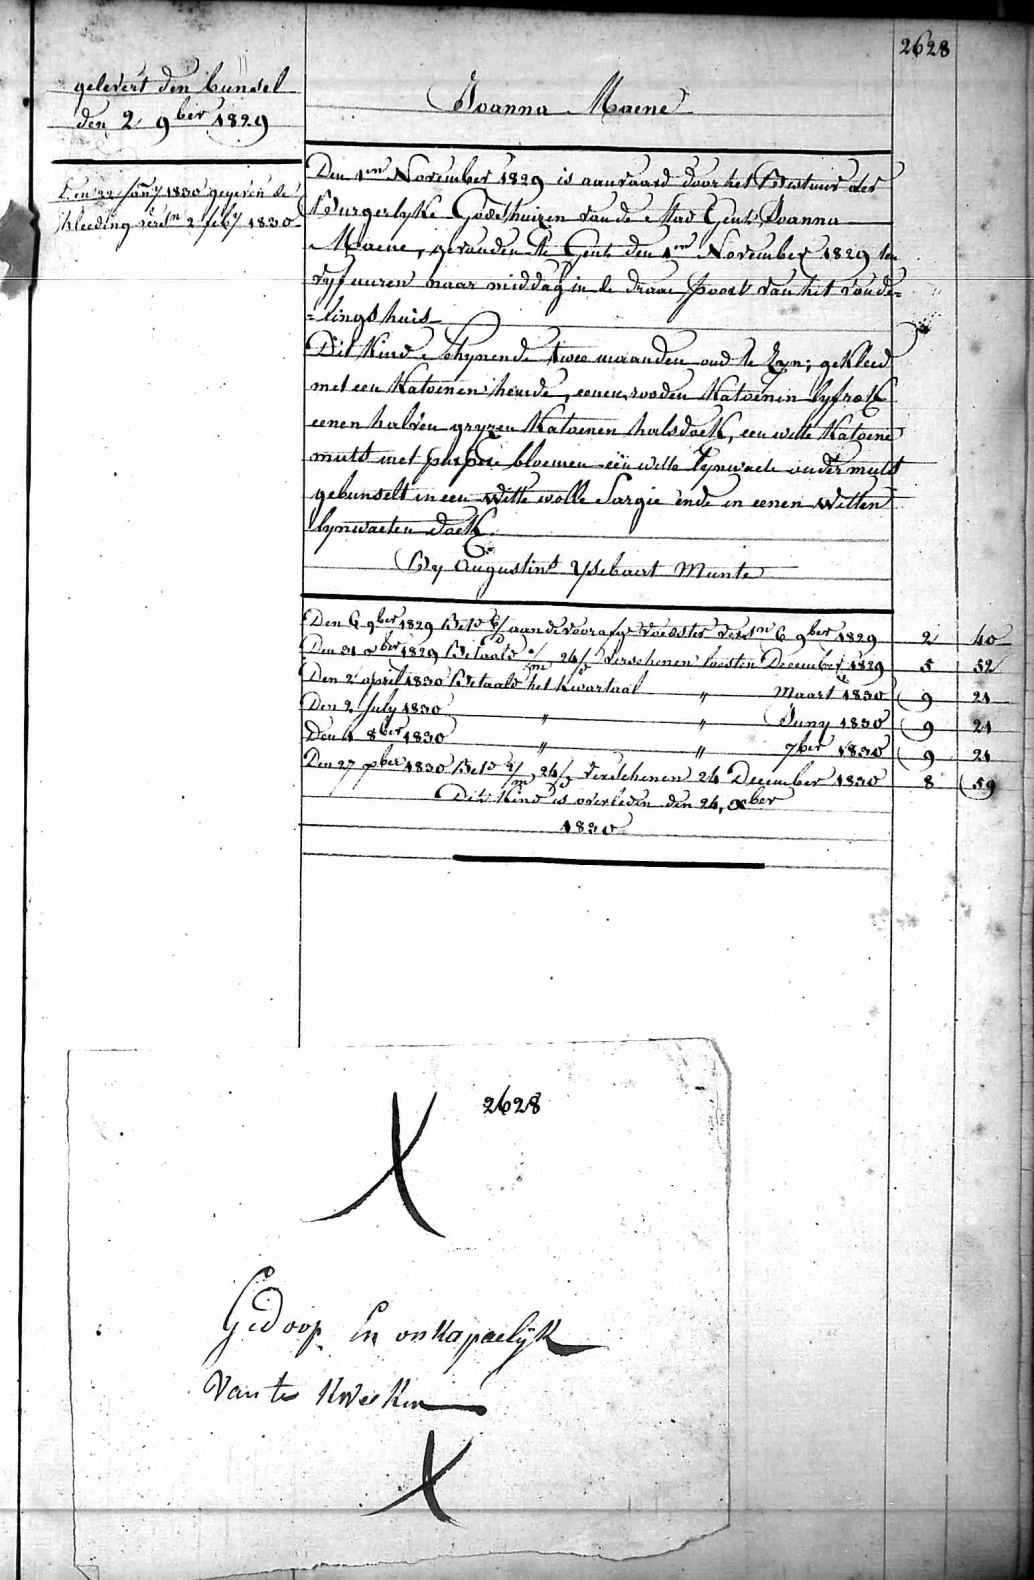 2628
gelevert den bunsel
den 2 9ber 1829
Joanna Maene
Den 22 Jany 1830 gegeven de
kleeding 2 feby 1830
Den 1en November 1829 is aanvaard door het Bestuur der
Burgerlyke Godshuizen van de Stad Gent, Joanna
Maene, gevonden te Gent den 1en November 1829 ten
vyf uuren naar middag in de draai poort van het vonde=
=lings huis
Dit Kind Schynende twee maanden oud te Zyn; gekleed
met een Katoenen hemde, eenen rooden Katoenen lyfrok
eenen halven gryzen Katoenen halsdoek, een witte Katoene
muts met purpere bloemen een witte lynwaete onder muts
gebunselt in een witte wolle Sargie ende in eenen witten
lynwaeten doek
By Augustin Ysebaert Munte
Den 6 9ber 1829 aan de voedster 6 9ber 1829 2 40
Den 31 xber 1829 Betaald 24/ verschenen laesten December 1829 5 52
Den 2 april 1830 Betaald het Kwartaal " Maart 1830 9 21
Den 2 July 1830 " " Juny 1830 9 21
Den 1 8ber 1830 " " 7ber 1830 9 21
Den 27 xber 1830 24/ verschenen 24 December 1830 8 59
Dit Kind is overleden den 24, xber
1830
2628
Gedoop En onkapaelijk
Van te kweeken